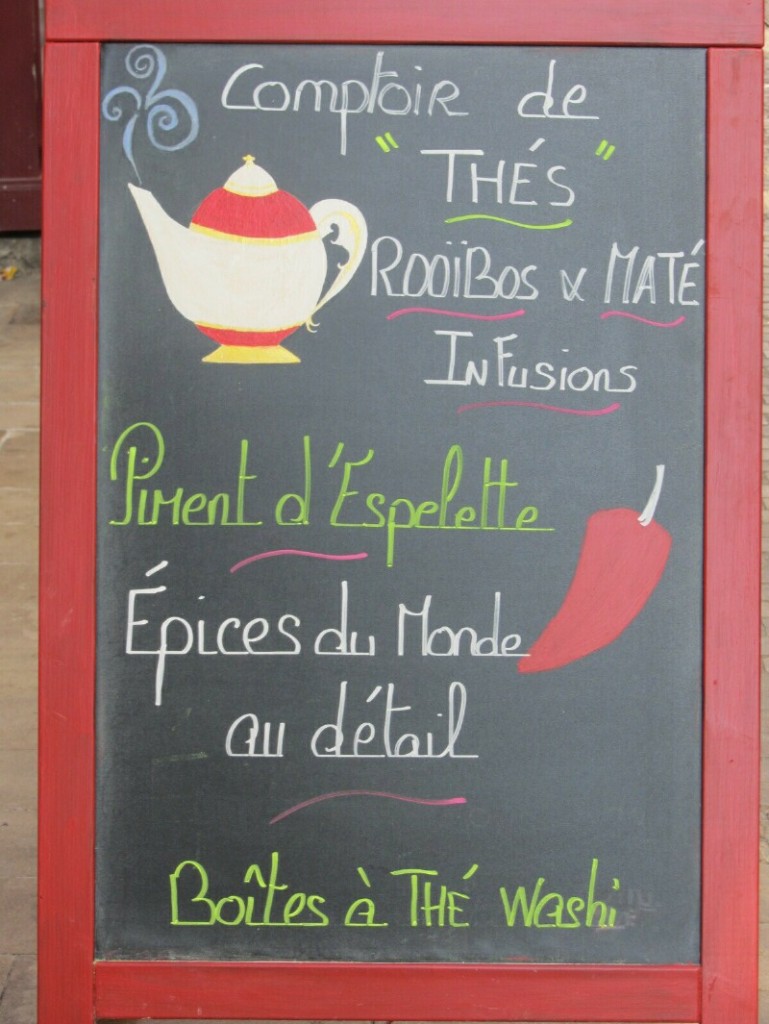 Comptoir de
" THÉS "
ROOÏBOS & MATÉ
INFUSIONS
Piment d'Espelette
Épices du Monde
au détail
Boîtes à THÉ Washi